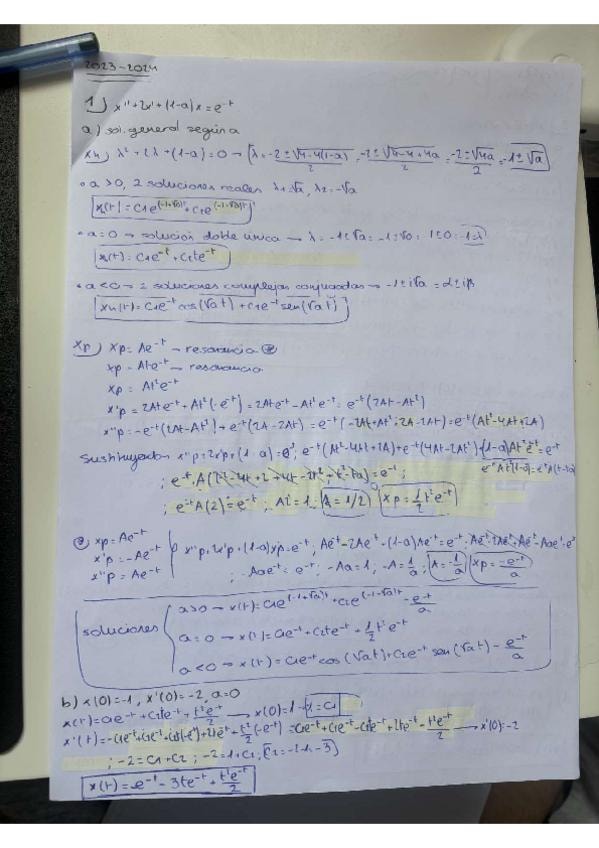 2023-2024
1) x''+2x'+(1-a)x=e^-t
a) sol. general según a
xh) λ²+2λ+(1-a)=0 → λ=-2±√4-4(1-a)/2 = -2±√4-4+4a/2 = -2±√4a/2 = -1±√a
• a>0, 2 soluciones reales λ1=√a, λ2=-√a
x(t)=C1e^(-1+√a)t+C2e^(-1-√a)t
• a=0 → solución doble única → λ=-1±√a=-1±√0=-1±0=-1=λ
x(t)=C1e^-t+C2te^-t
• a<0 → 2 soluciones complejas conjugadas → -1±i√a=α±iβ
xh(t)=C1e^-t cos(√a t)+C2e^-t sen(√a t)
xp) xp=Ae^-t → resonancia
xp=Ate^-t → resonancia
xp=At²e^-t
x'p=2Ate^-t+At²(-e^-t)=2Ate^-t-At²e^-t=e^-t(2At-At²)
x''p=-e^-t(2At-At²)+e^-t(2A-2At)=e^-t(-2At+At²+2A-2At)=e^-t(At²-4At+2A)
Sustituyendo x''p+2x'p+(1-a)=e^-t; e^-t(At²-4At+2A)+e^-t(4At-2At²)+(1-a)At²e^-t=e^-t
; e^-t A(t²-4t+2+4t-2t²+t²-ta)=e^-t;
; e^-t A(2)=e^-t; A2=1; A=1/2 xp=1/2 t²e^-t
xp=Ae^-t
x'p=-Ae^-t
x''p=Ae^-t
x''p+2x'p+(1-a)xp=e^-t; Ae^-t-2Ae^-t+(1-a)Ae^-t=e^-t; Ae^-t-2Ae^-t+Ae^-t-Aae^-t=e^-t
; -Aae^-t=e^-t; -Aa=1, -A=1/a; A=-1/a xp=-e^-t/a
soluciones
a>0 → x(t)=C1e^(-1+√a)t+C2e^(-1-√a)t-e^-t/a
a=0 → x(t)=C1e^-t+C2te^-t+1/2 t²e^-t
a<0 → x(t)=C1e^-t cos(√a t)+C2e^-t sen(√a t)-e^-t/a
b) x(0)=-1, x'(0)=-2, a=0
x(t)=C1e^-t+C2te^-t+t²e^-t/2 → x(0)=1
→ x'(0)=-2
; -2=C1+C2; -2=1+C2;
x(t)=e^-t-3te^-t+t²e^-t/2